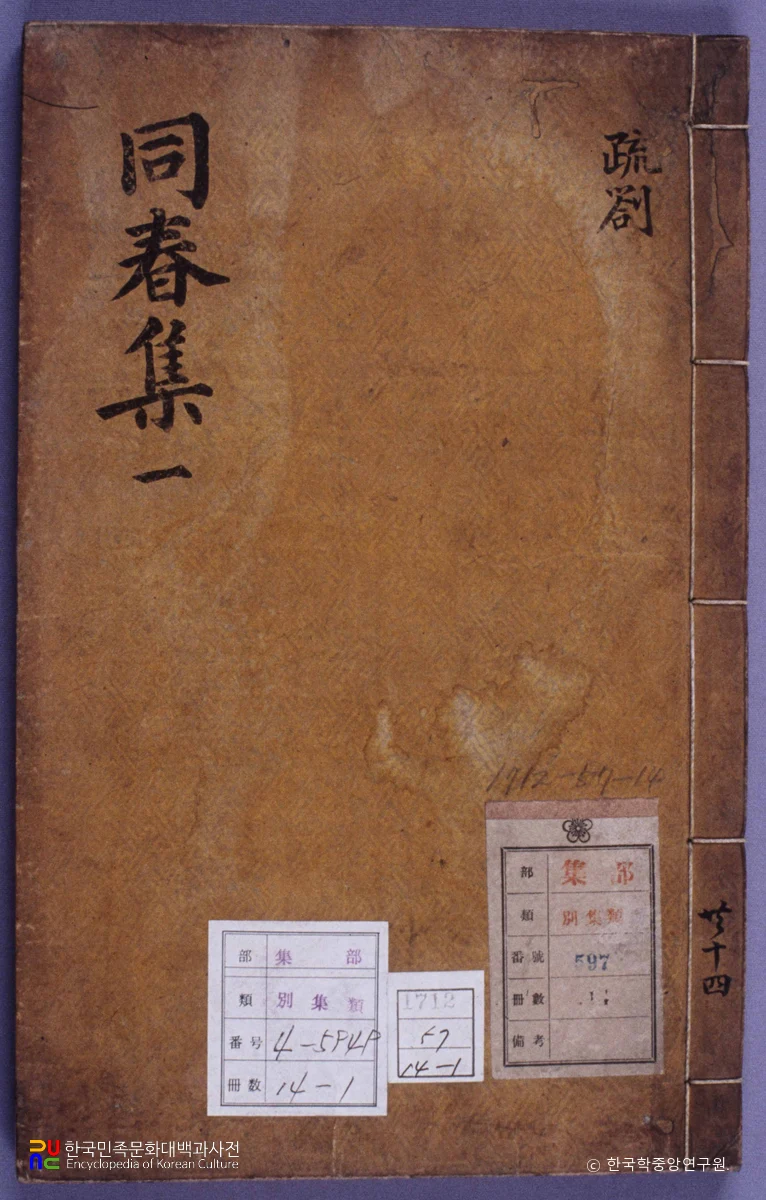 同春集 一
疏劄
共十四
1712-57-14
部 集部
類 別集類
番號 597
冊數
備考
部 集部
類 別集類
番号 4-5949
冊数 14-1
1712
57
14-1
한국민족문화대백과사전
Encyclopedia of Korean Culture
© 한국학중앙연구원